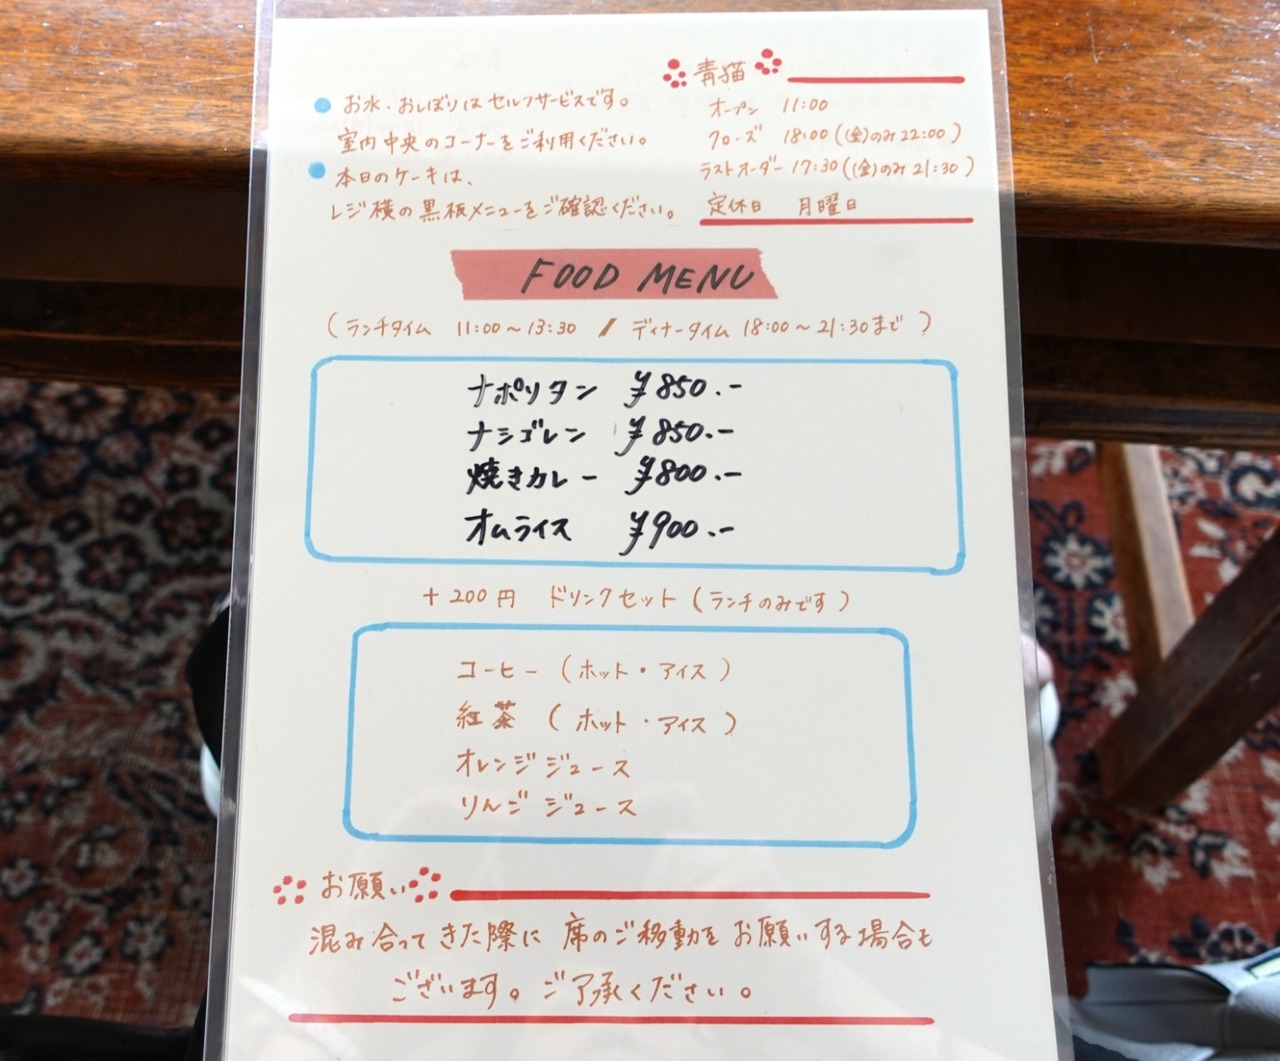 お水・おしぼりはセルフサービスです。
室内中央のコーナーをご利用ください。
本日のケーキは、
レジ横の黒板メニューをご確認ください。
青猫
オープン 11:00
クローズ 18:00 ((金)のみ 22:00)
ラストオーダー 17:30 ((金)のみ 21:30)
定休日 月曜日
FOOD MENU
(ランチタイム 11:00〜13:30 / ディナータイム 18:00〜21:30まで)
ナポリタン ¥850.-
ナシゴレン ¥850.-
焼きカレー ¥800.-
オムライス ¥900.-
+200円 ドリンクセット(ランチのみです)
コーヒー(ホット・アイス)
紅茶(ホット・アイス)
オレンジジュース
りんごジュース
お願い
混み合ってきた際に席のご移動をお願いする場合も
ございます。ご了承ください。